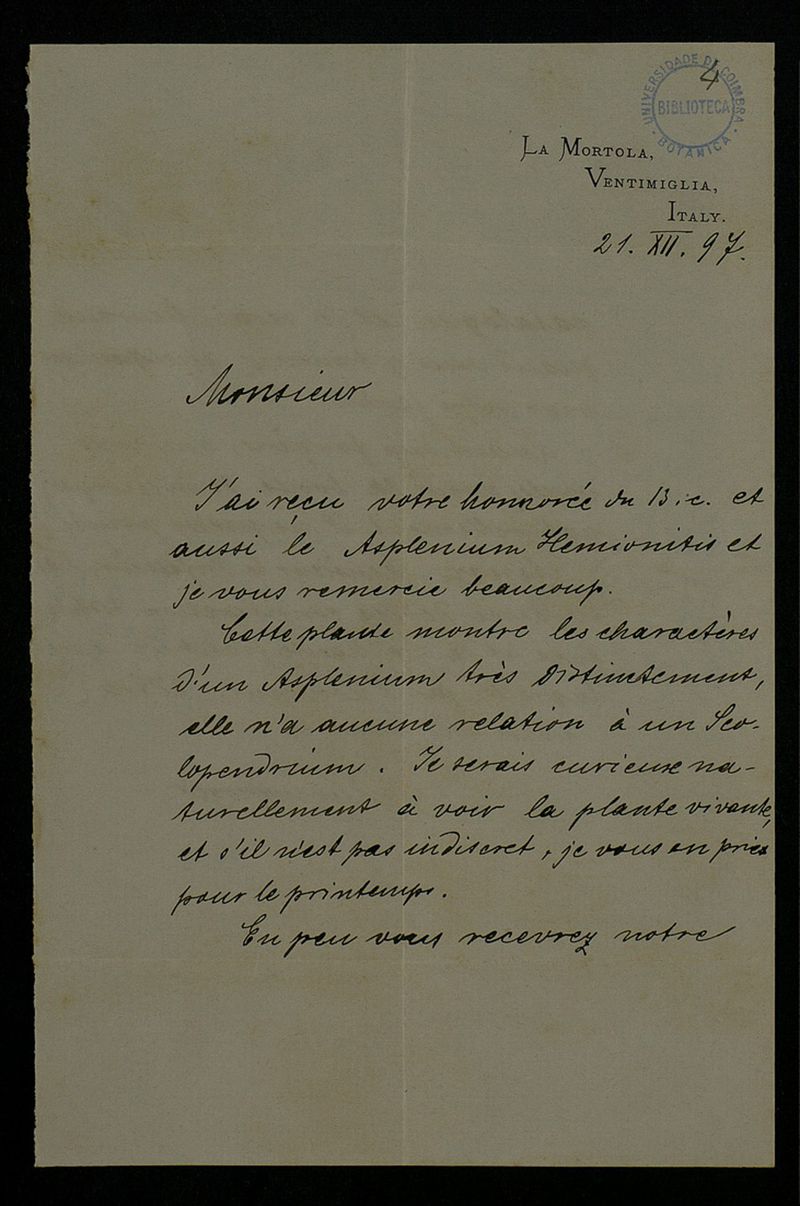 4
UNIVERSIDADE DE COIMBRA
BIBLIOTECA
BOTANICA
La Mortola,
Ventimiglia,
Italy.
21. XII. 97.
Monsieur
J'ai reçu votre honnorée du 13. c. et
aussi le Asplenium Hemionitis et
je vous remercie beaucoup.
Cette plante montre les charactères
d'un Asplenium très distinctement,
elle n'a aucune relation à un Sco-
lopendrium. Je serais curieuse na-
turellement à voir la plante vivante,
et s'il n'est pas indiscret, je vous en prie
pour le printemps.
En peu vous recevrez notre